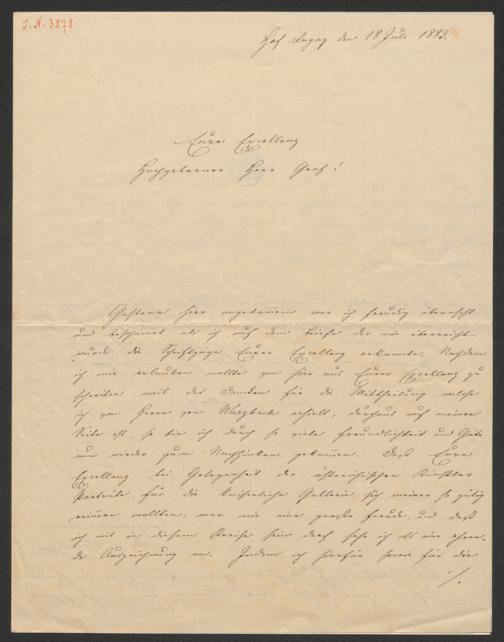 J.N. 3878.
Hof Ragaz den 18 Juli 1883.
Eure Excellenz
Hochgeborner Herr Graf!
Gestern hier angekommen war ich freudig überrascht
und beschämt als ich auf dem Briefe der mir überreicht
wurde die Schriftzüge Eurer Excellenz erkannte. Nachdem
ich mir erlauben wollte von hier aus Eurer Excellenz zu
schreiben weil das Danken für die Mittheilung welche
ich von Herrn von Wurzbach erhielt, durchaus auf meiner
Seite ist, so bin ich durch so viele Freundlichkeit und Güte
nun wieder zum gekommen. Daß Eure
Excellenz bei Gelegenheit der österreichischen Künstler
Porträte für die kaiserliche Gallerie sich meiner so gütig
erinnern wollten, war mir eine große Freude, und daß
ich mit in diesem Kreise sein darf sehe ich als eine ehren-
de Auszeichnung an. Indem ich hierfür sowie für die
./.